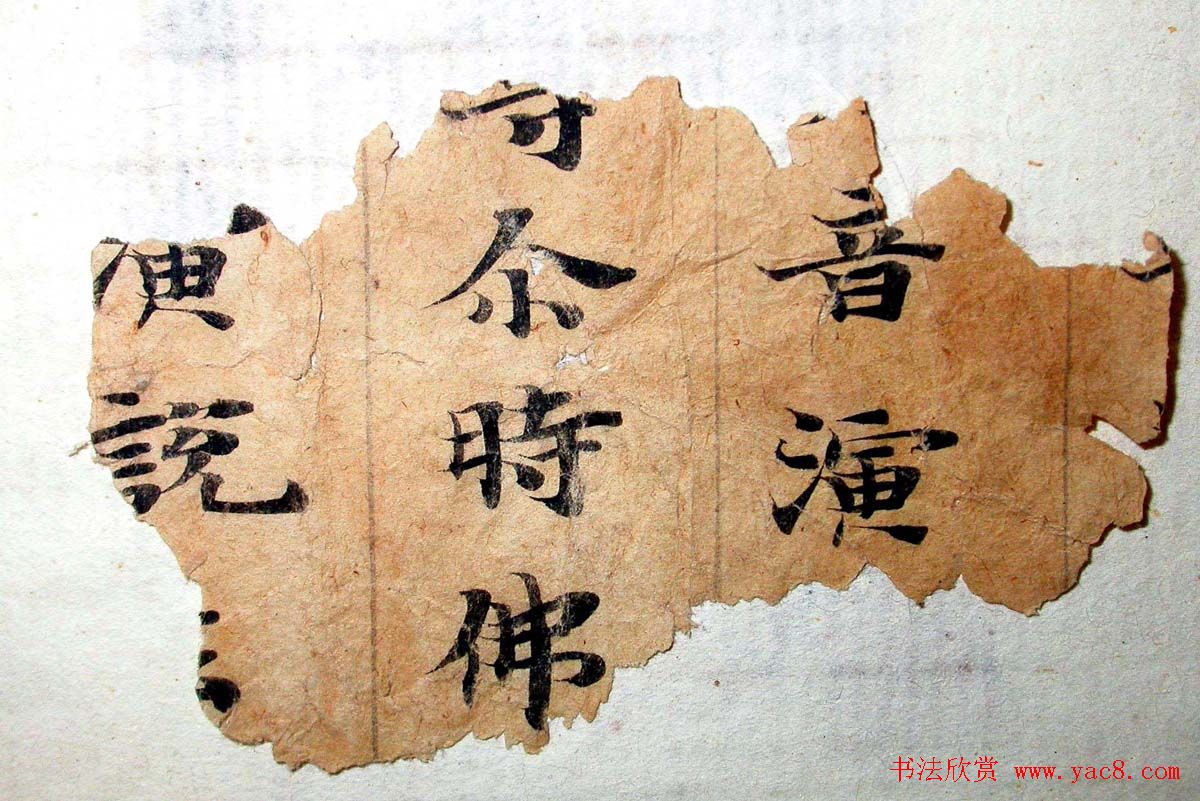 音演
尒時佛
便説
书法欣赏 www.yac8.com